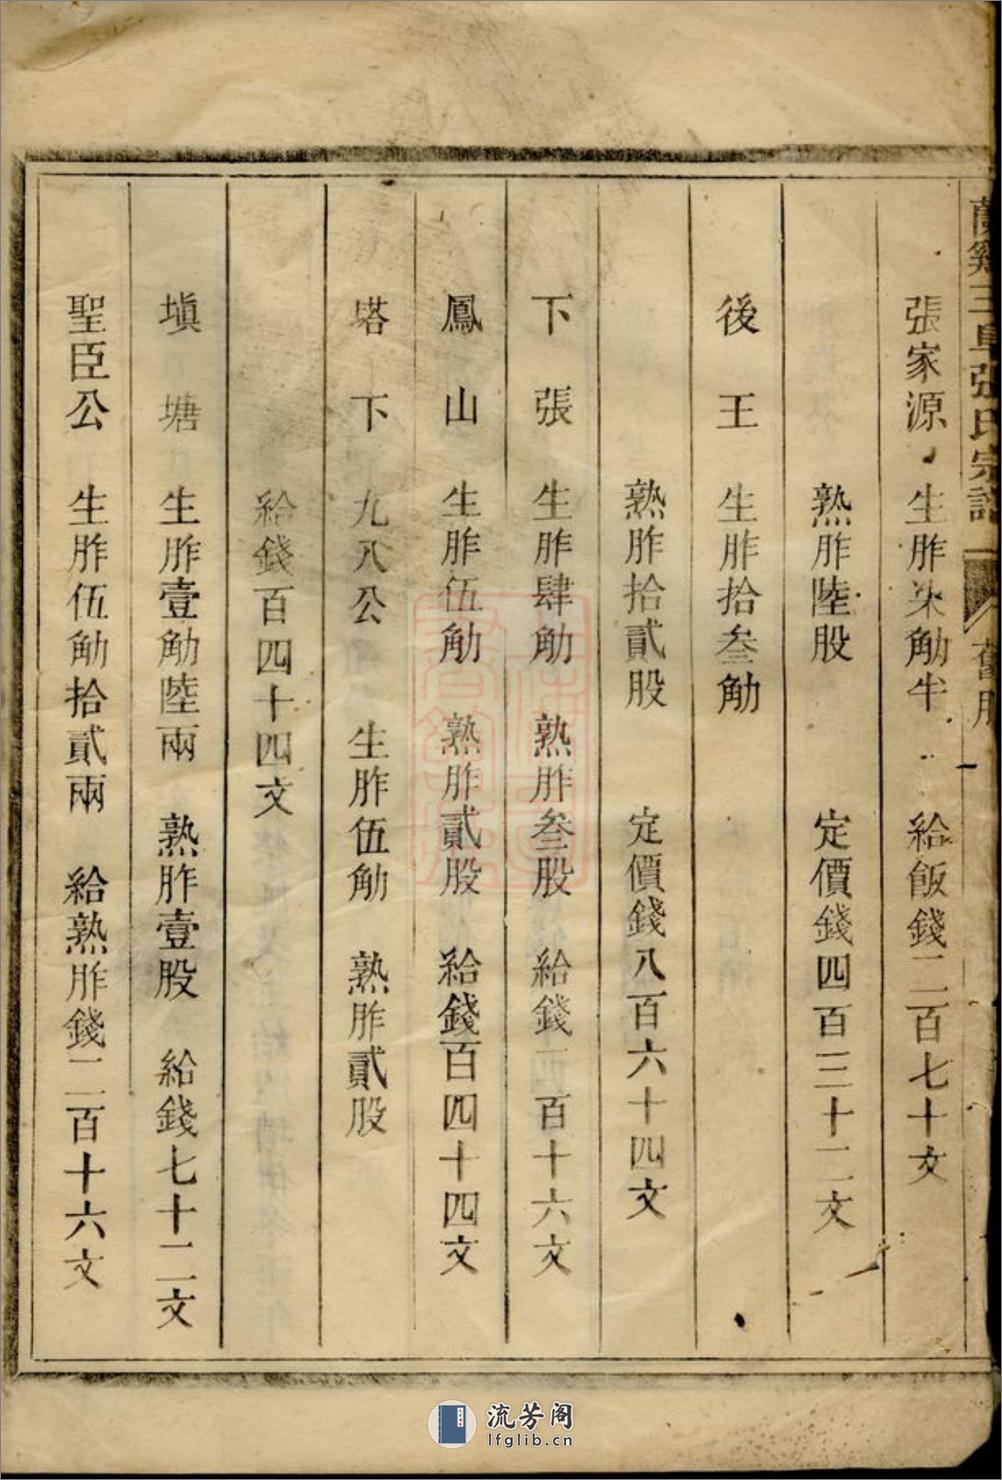 張家源 生胙柒觔半 給飯錢二百七十文
熟胙陸股 定價錢四百三十二文
後王 生胙拾叁觔
熟胙拾貳股 定價錢八百六十四文
下張 生胙肆觔 熟胙叁股 給錢二百十六文
鳳山 生胙伍觔 熟胙貳股 給錢百四十四文
塔下 九八公 生胙伍觔 熟胙貳股
給錢百四十四文
塡塘 生胙壹觔陸兩 熟胙壹股 給錢七十二文
聖臣公 生胙伍觔拾貳兩 給熟胙錢二百十六文
張氏宗譜
流芳阁
lfglib.cn